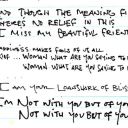 AND THOUGH THE MEANING F
THERES NO RELIEF IN THIS
I MISS MY BEAUTIFUL FRIEN
MAKES FOOLS OF US ALL
WOMAN WHAT ARE YOU SAYING TO
WOMAN WHAT ARE YOU SAYING TO
I am your LANDSLARK OF BLISS
I'm Not with you But of you
I'm NOT WITH YOU BUT OF YO